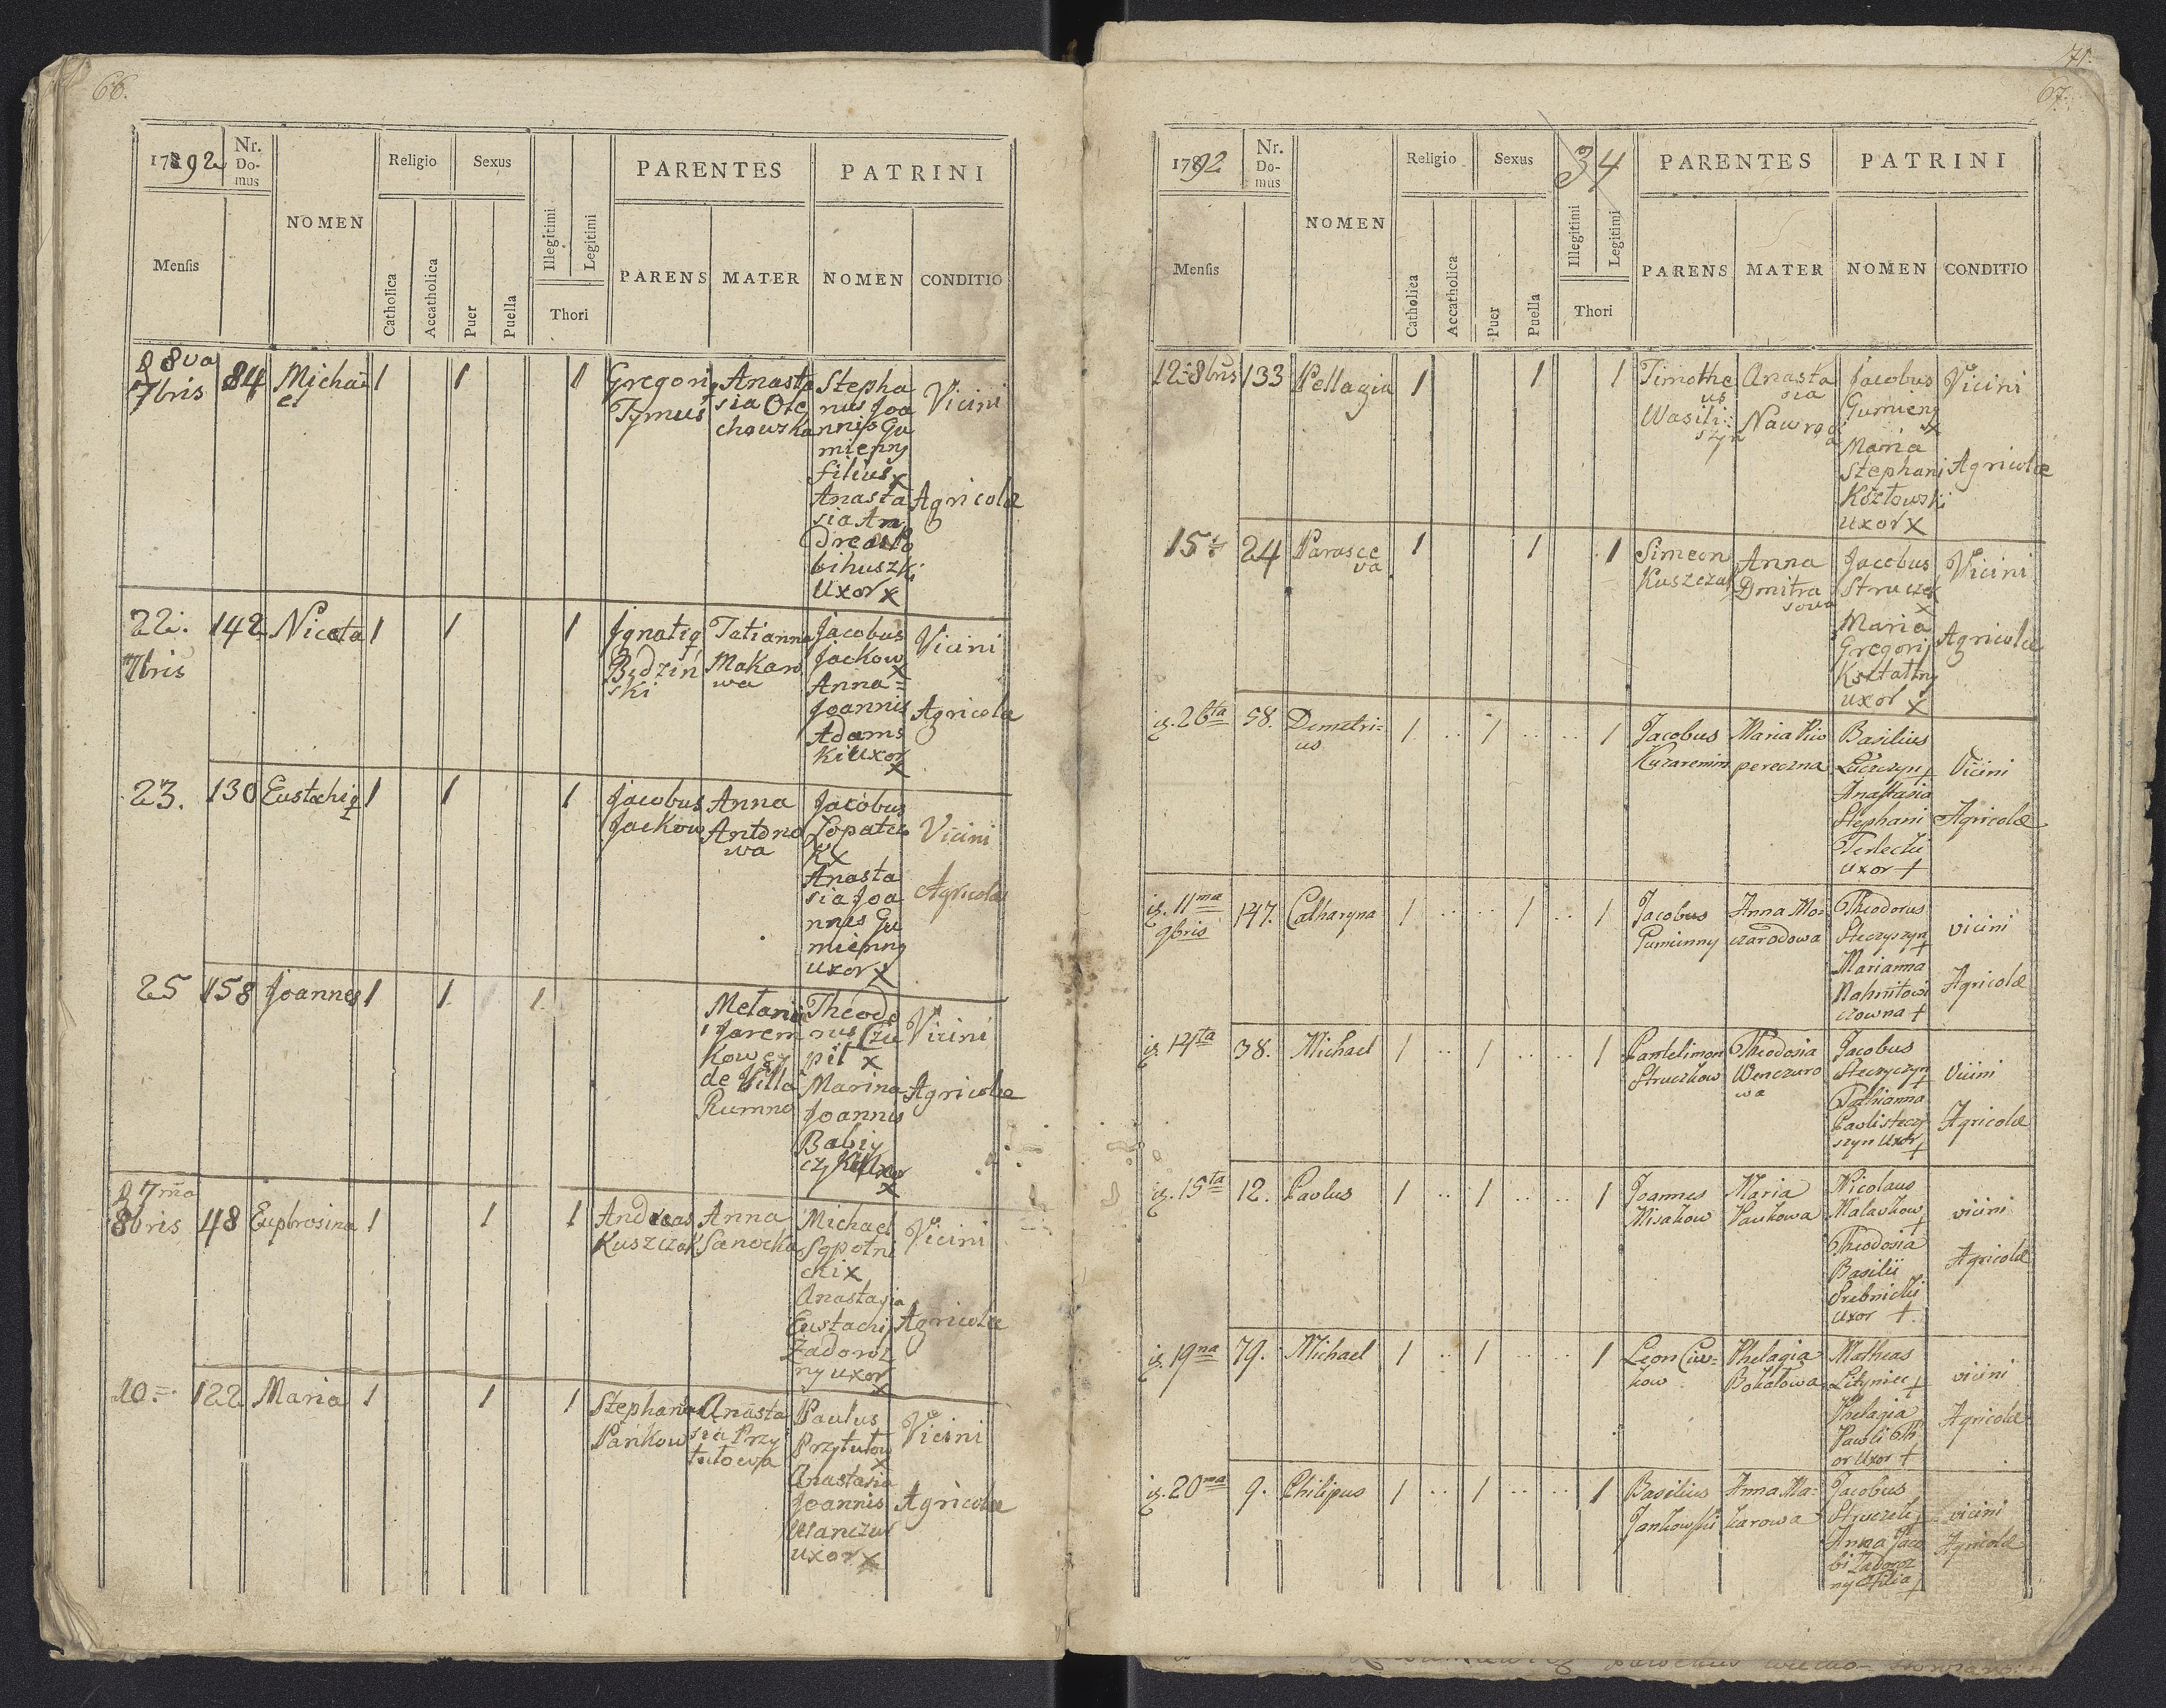 66.
1792
Nr. Do-mus
NOMEN
Religio
Sexus
PARENTES
PATRINI
Mensis
Catholica
Accatholica
Puer
Puella
Illegitimi
Legitimi
Thori
PARENS
MATER
NOMEN
CONDITIO
D 8va
7bris
84
Micha
el
1
1
1
Gregori
Tymus
Anasta
sia Ole
chowska
Stepha
nus Joa
nnis Gu
mienny
filius x
Anasta
sia An
dreae
bihuszki
Uxor x
Vicini
Agricolæ
22.
7bris
142
Niceta
1
1
1
Jgnati
Bydzin
ski
Tatianna
Makaro
wa
Jacobus
Jackow
x
Anna
Joannis
Adams
ki Uxor
x
Vicini
Agricola
23.
130
Eustachi
1
1
1
Jacobus
Jackow
Anna
Antono
wa
Jacobus
Lopatcz
k x
Anasta
sia Joa
nnes Gu
mienny
uxor x
Vicini
Agricolæ
25
158
Joannes
1
1
1
Melania
Jarem
kowey
de Villa
Rumno
Theodo
rus Czu
pil x
Marina
Joannis
Babiy
czyk Uxor
x
Vicini
Agricolæ
D 7ma
8bris
48
Euphrosina
1
1
1
Andreas
Kuszczak
Anna
Sanocka
Michael
Sopotni
cki x
Anastasia
Eustachi
Zadoroz
ny uxor
x
Vicini
Agricolæ
20
122
Maria
1
1
1
Stephanus
Pankow
Anasta
sia Przy
tulowa
Paulus
Przytulow
x
Anastasia
Joannis
Wanczur
uxor x
Vicini
Agricolæ
71.
67.
1792
Nr. Do-mus
NOMEN
Religio
Sexus
34
PARENTES
PATRINI
Mensis
Catholica
Accatholica
Puer
Puella
Illegitimi
Legitimi
Thori
PARENS
MATER
NOMEN
CONDITIO
12 8bris
133
Pellagia
1
1
1
Timothe
us
Wasili
szyn
Anasta
sia
Nawroc
a
Jacobus
Gumieny
x
Maria
Stephani
Kozlowski
uxor x
Vicini
Agricolæ
15
24
Parasce
va
1
1
1
Simeon
Kuszczak
Anna
Dmitra
sowa
Jacobus
Struczek
x
Maria
Gregorij
Ksztaltny
uxor x
Vicini
Agricolæ
26ta
58.
Demetri-
us
1
1
1
Jacobus
Maria
pereczna
Basilius
Luczczyn +
Anastasia
Stephani
Terlecki
uxor +
Vicini
Agricolæ
11ma
9bris
147.
Catharyna
1
1
1
Jacobus
Gumienny
Anna Mo-
czarodowa
Theodorus
Steczyszyn
+
Marianna
Nahnitowi
czowna +
vicini
Agricolæ
14ta
38.
Michael
1
1
1
Pantelimon
Struczkow
Theodosia
Wenczuro
wa
Jacobus
Steczyczyn
+
Tathianna
Pavli Steczy
szyn Uxor +
Vicini
Agricolæ
15ta
12.
Pavlus
1
1
1
Joannes
Misakow
Maria
Pankowa
Nicolaus
Malawkow
+
Theodosia
Basilii
Srebnicki
uxor +
vicini
Agricolæ
19na
79.
Michael
1
1
1
Leon Ciw-
kow
Phelagia
Bokalowa
Matheas
Lityniec +
Phelagia
Pawli
or Uxor +
vicini
Agricolæ
20ma
9.
Philipus
1
1
1
Basilius
Jankowski
Anna Ma-
karowa
Jacobus
Struczek +
Anna Jaco
bi Zadoroz
ny Filia +
vicini
Agricolæ